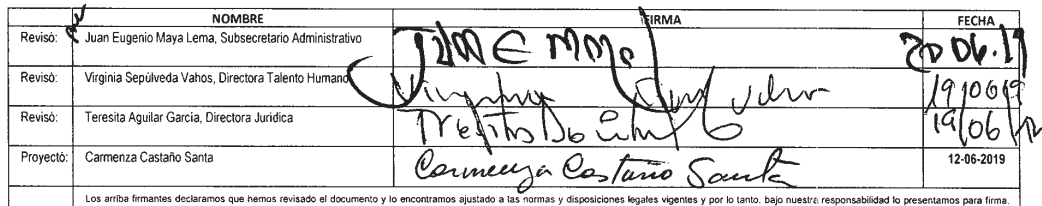 NOMBRE FIRMA FECHA
Revisó: Juan Eugenio Maya Lema, Subsecretario Administrativo 20 06.19
Revisó: Virginia Sepúlveda Vahos, Directora Talento Humano Virginia
Revisó: Teresita Aguilar García, Directora Jurídica Teresita
Proyectó: Carmenza Castaño Santa Carmenza Castaño Santa 12-06-2019
Los arriba firmantes declaramos que hemos revisado el documento y lo encontramos ajustado a las normas y disposiciones legales vigentes y por lo tanto, bajo nuestra responsabilidad lo presentamos para firma.